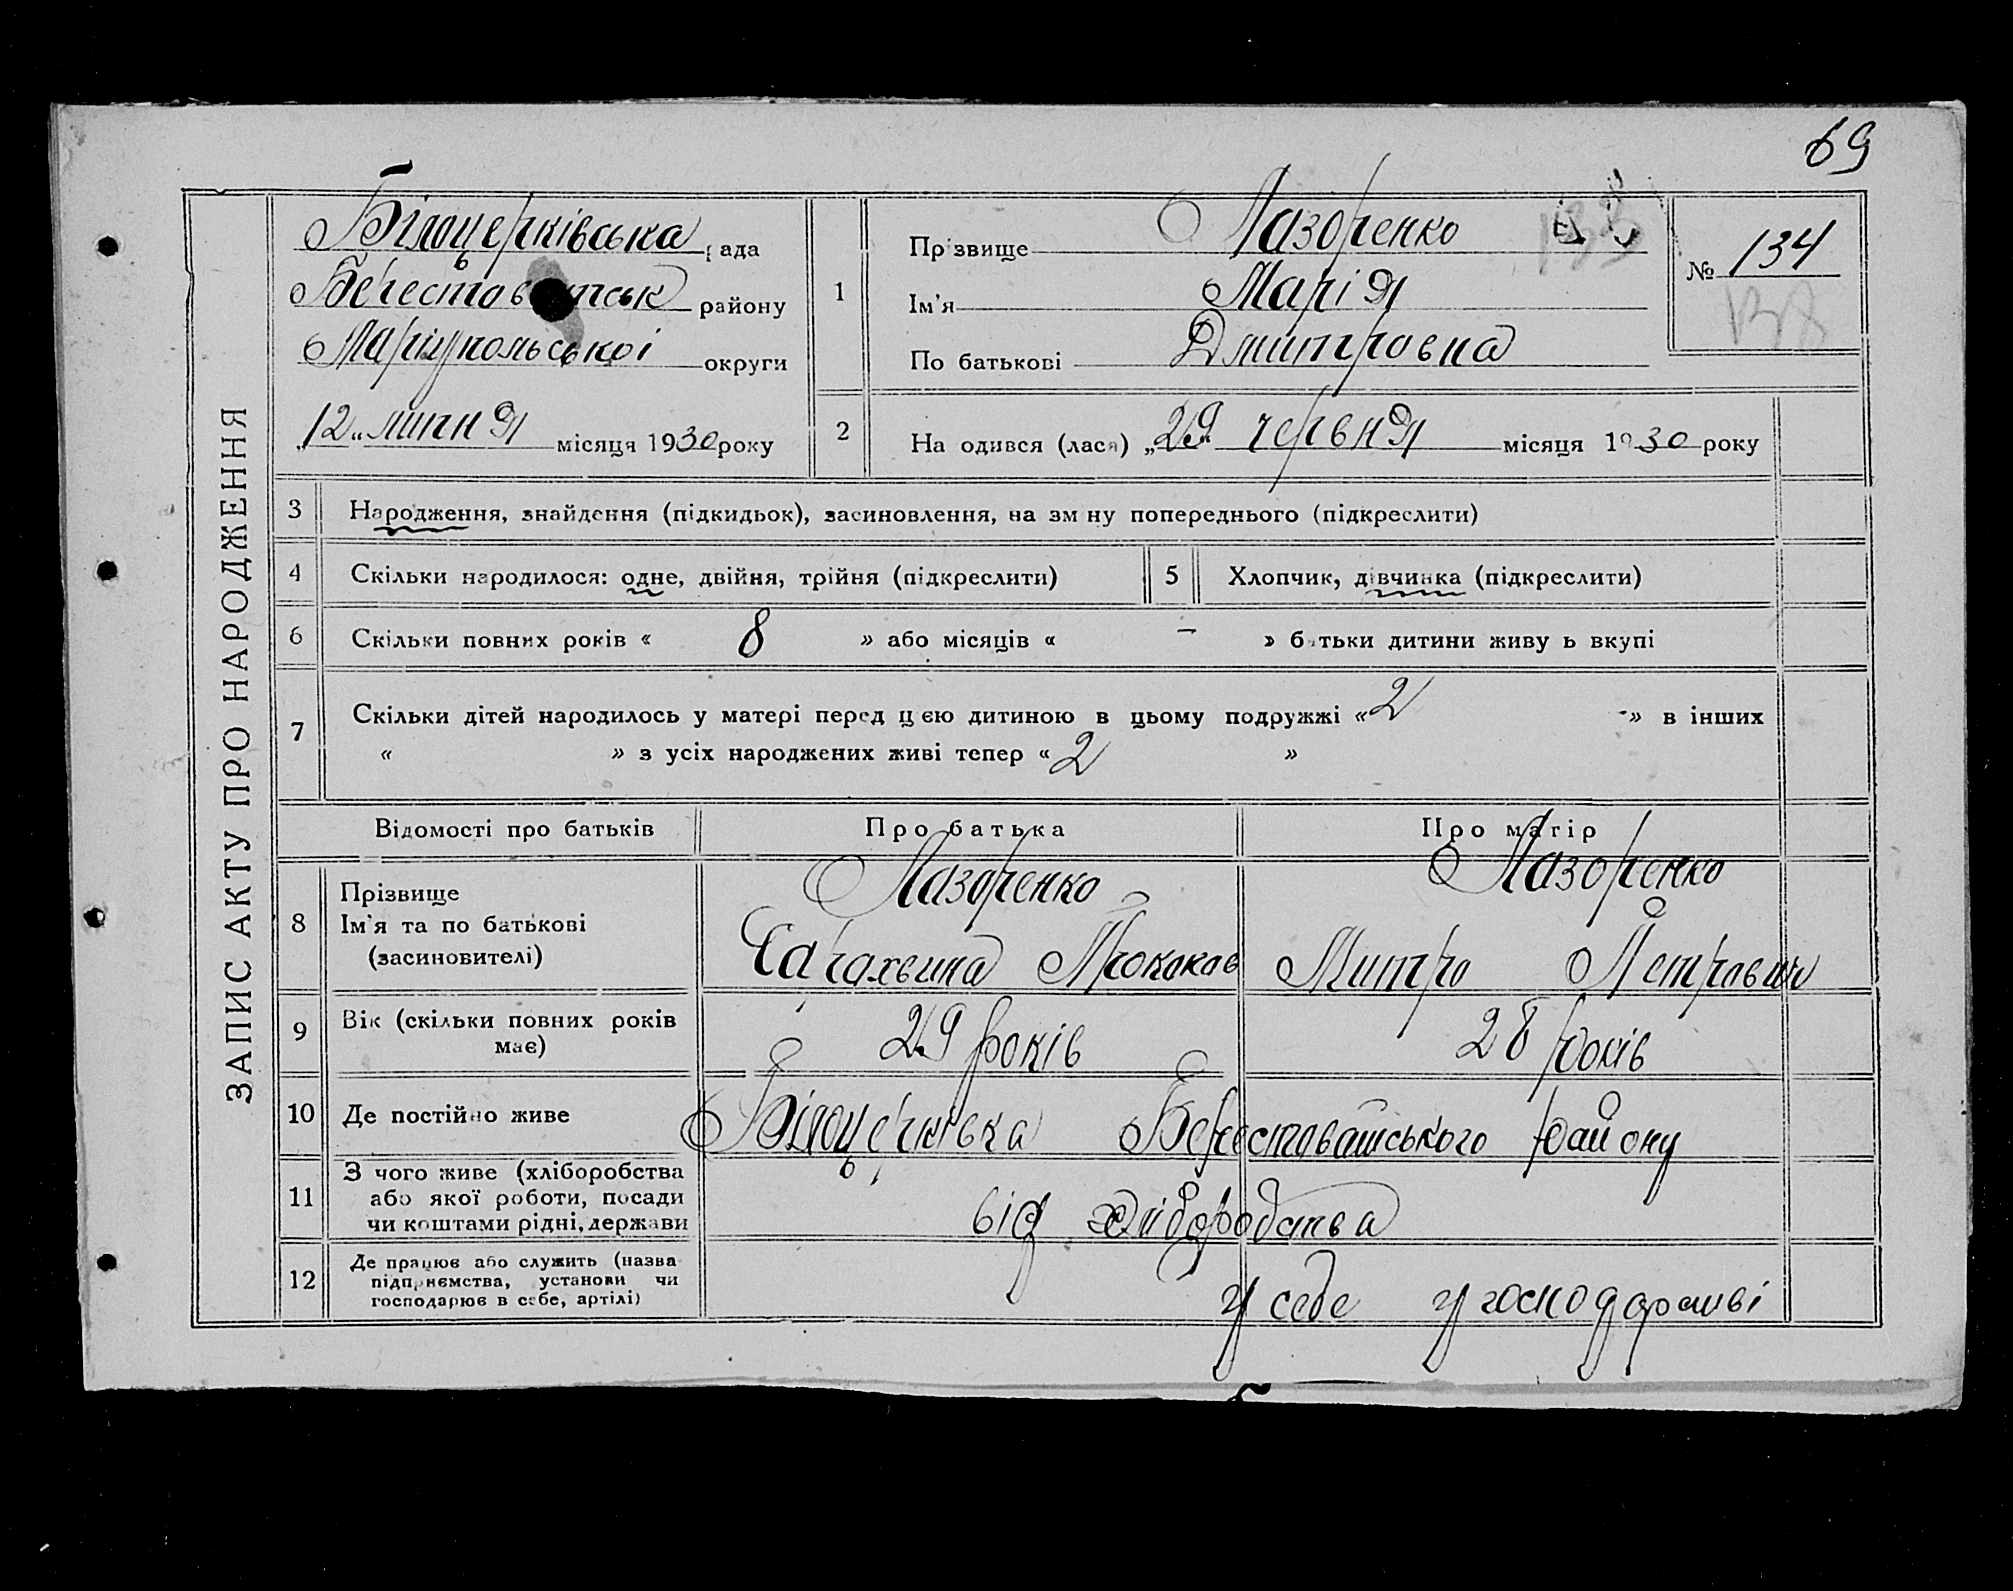 69
ЗАПИС АКТУ ПРО НАРОДЖЕННЯ
Білоцерківська рада
району
Маріупольської округи
12 „ липня місяця 1930 року
1
Прізвище Лазоренко
Ім'я Марія
По батькові Дмитровна
№ 134
2
На одився (лася) „29 червня місяця 1930 року
3 Народження, знайдення (підкидьок), засиновлення, на зм ну попереднього (підкреслити)
4 Скільки народилося: одне, двійня, трійня (підкреслити)
5 Хлопчик, дівчинка (підкреслити)
6 Скільки повних років « 8 » або місяців « – » батьки дитини живу ь вкупі
7 Скільки дітей народилось у матері перед цією дитиною в цьому подружжі « 2 -» в інших
« » з усіх народжених живі тепер « 2 »
Відомості про батьків Про батька Про матір
8 Прізвище
Ім'я та по батькові
(засиновителі)
Лазоренко Лазоренко
Митро Петрович
9 Вік (скільки повних років
має)
29 років 28 років
10 Де постійно живе Білоцерківка Берестоватського району
11 З чого живе (хліборобства
або якої роботи, посади
чи коштами рідні, держави
від хліборобства
12 Де працює або служить (назва
підприємства, установи чи
господарює в себе, артілі)
у себе у господарстві